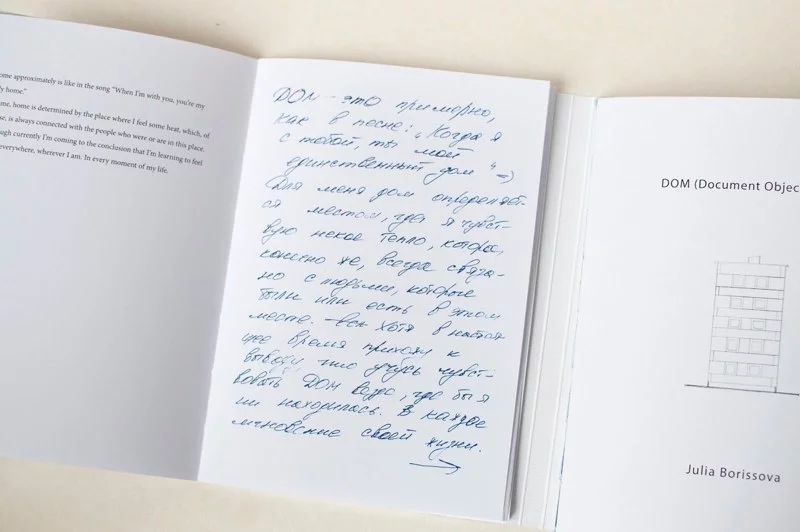 ome approximately is like in the song "When I'm with you, you're my
y home."
me, home is determined by the place where I feel some heat, which, of
se, is always connected with the people who were or are in this place.
ugh currently I'm coming to the conclusion that I'm learning to feel
everywhere, wherever I am. In every moment of my life.
ДОМ - это примерно,
как в песне: „Когда я
с тобой, ты мой
единственный дом" =)
Для меня дом определяет-
ся местом, где я чувст-
вую некое тепло, которое,
конечно же, всегда связа-
но с людьми, которые
были или есть в этом
месте. Хотя в настоя
щее время прихожу к
выводу, что учусь чувст-
вовать ДОМ везде, где бы я
ни находилась. В каждое
мгновение своей жизни.
DOM (Document Objec
Julia Borissova